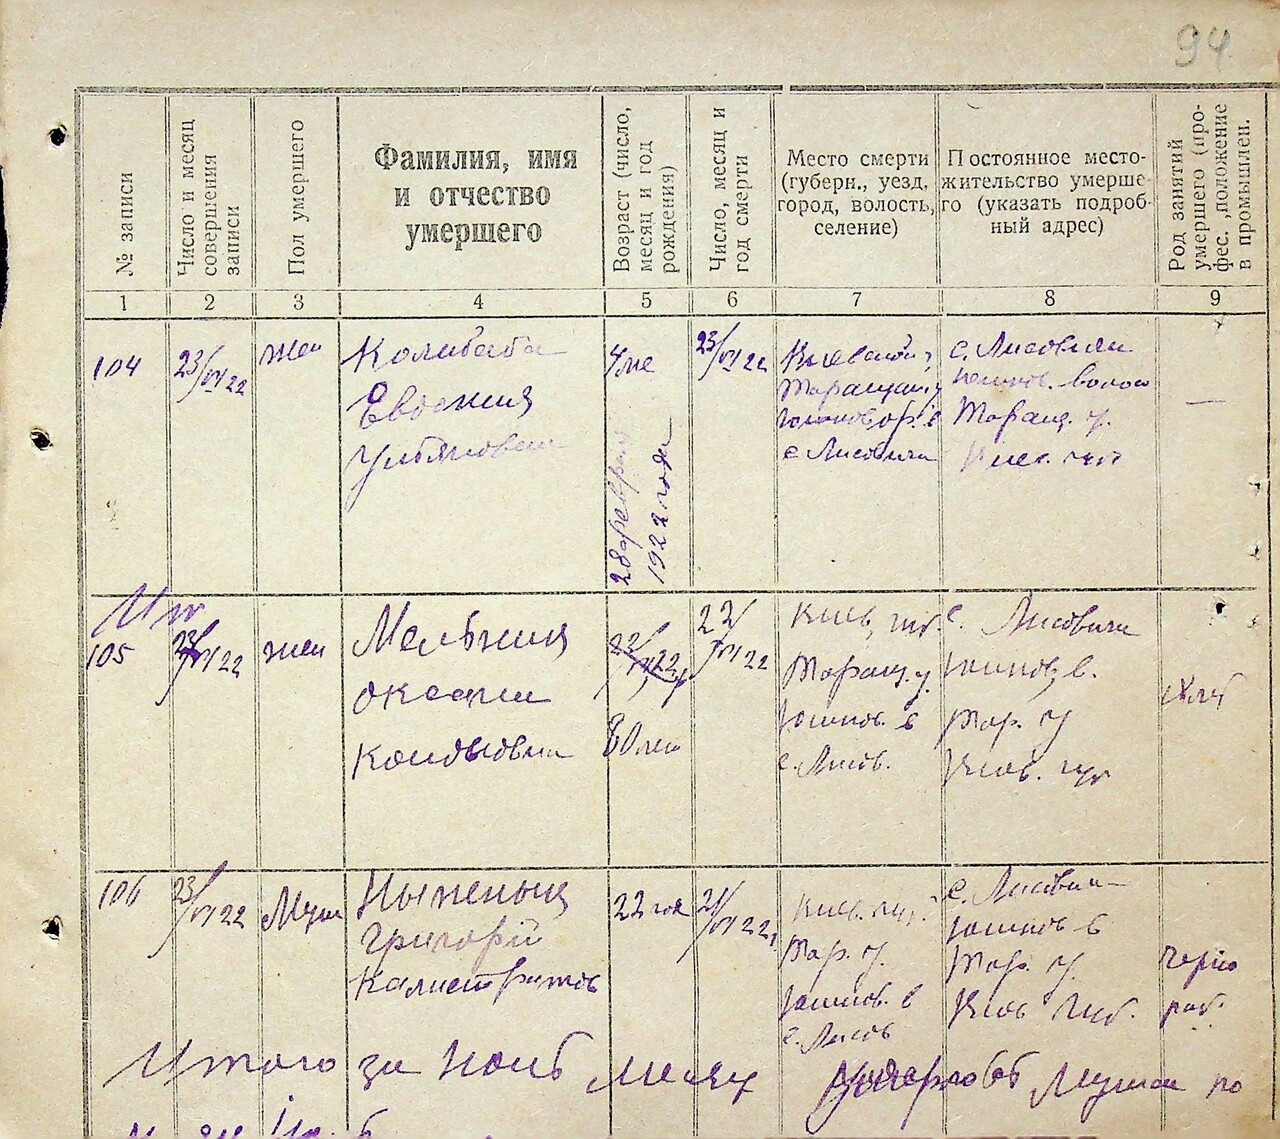 94
№ записи
Число и месяц
совершения
записи
Пол умершего
Фамилия, имя
и отчество
умершего
Возраст (число,
месяц и год
рождения)
Число, месяц и
год смерти
Место смерти
(губерн., уезд,
город, волость,
селение)
Постоянное место-
жительство умерше-
го (указать подроб-
ный адрес)
Род занятий
умершего (про-
фес., положение
в промышлен.
1 2 3 4 5 6 7 8 9
104
23/VI 22
жен
Колибаба
Евдокия
Ульяновна
4 ме
28 февраля
1922 года
23/VI 22
Киевской г
Таращан у
с Лисовичи
с. Лисовичи
Таращ. у.
Киев. губ
—
105
23/VI 22
жен
Мельник
Оксана
80 лет
22/VI 22
Киев. губ.
Таращ. у.
Юшков. в
с. Лисов.
с. Лисовичи
Юшков. в.
Тар. у
Киев. губ
106
23/VI 22
Муж
Григорий
Калистратов
22 год
21/VI 22
Киев. губ.
Тар. у.
Юшков. в
с. Лисов
с. Лисович
Юшков в
Тар. у.
Киев губ.
черно
раб.
Итого за месяц умерло 65 по